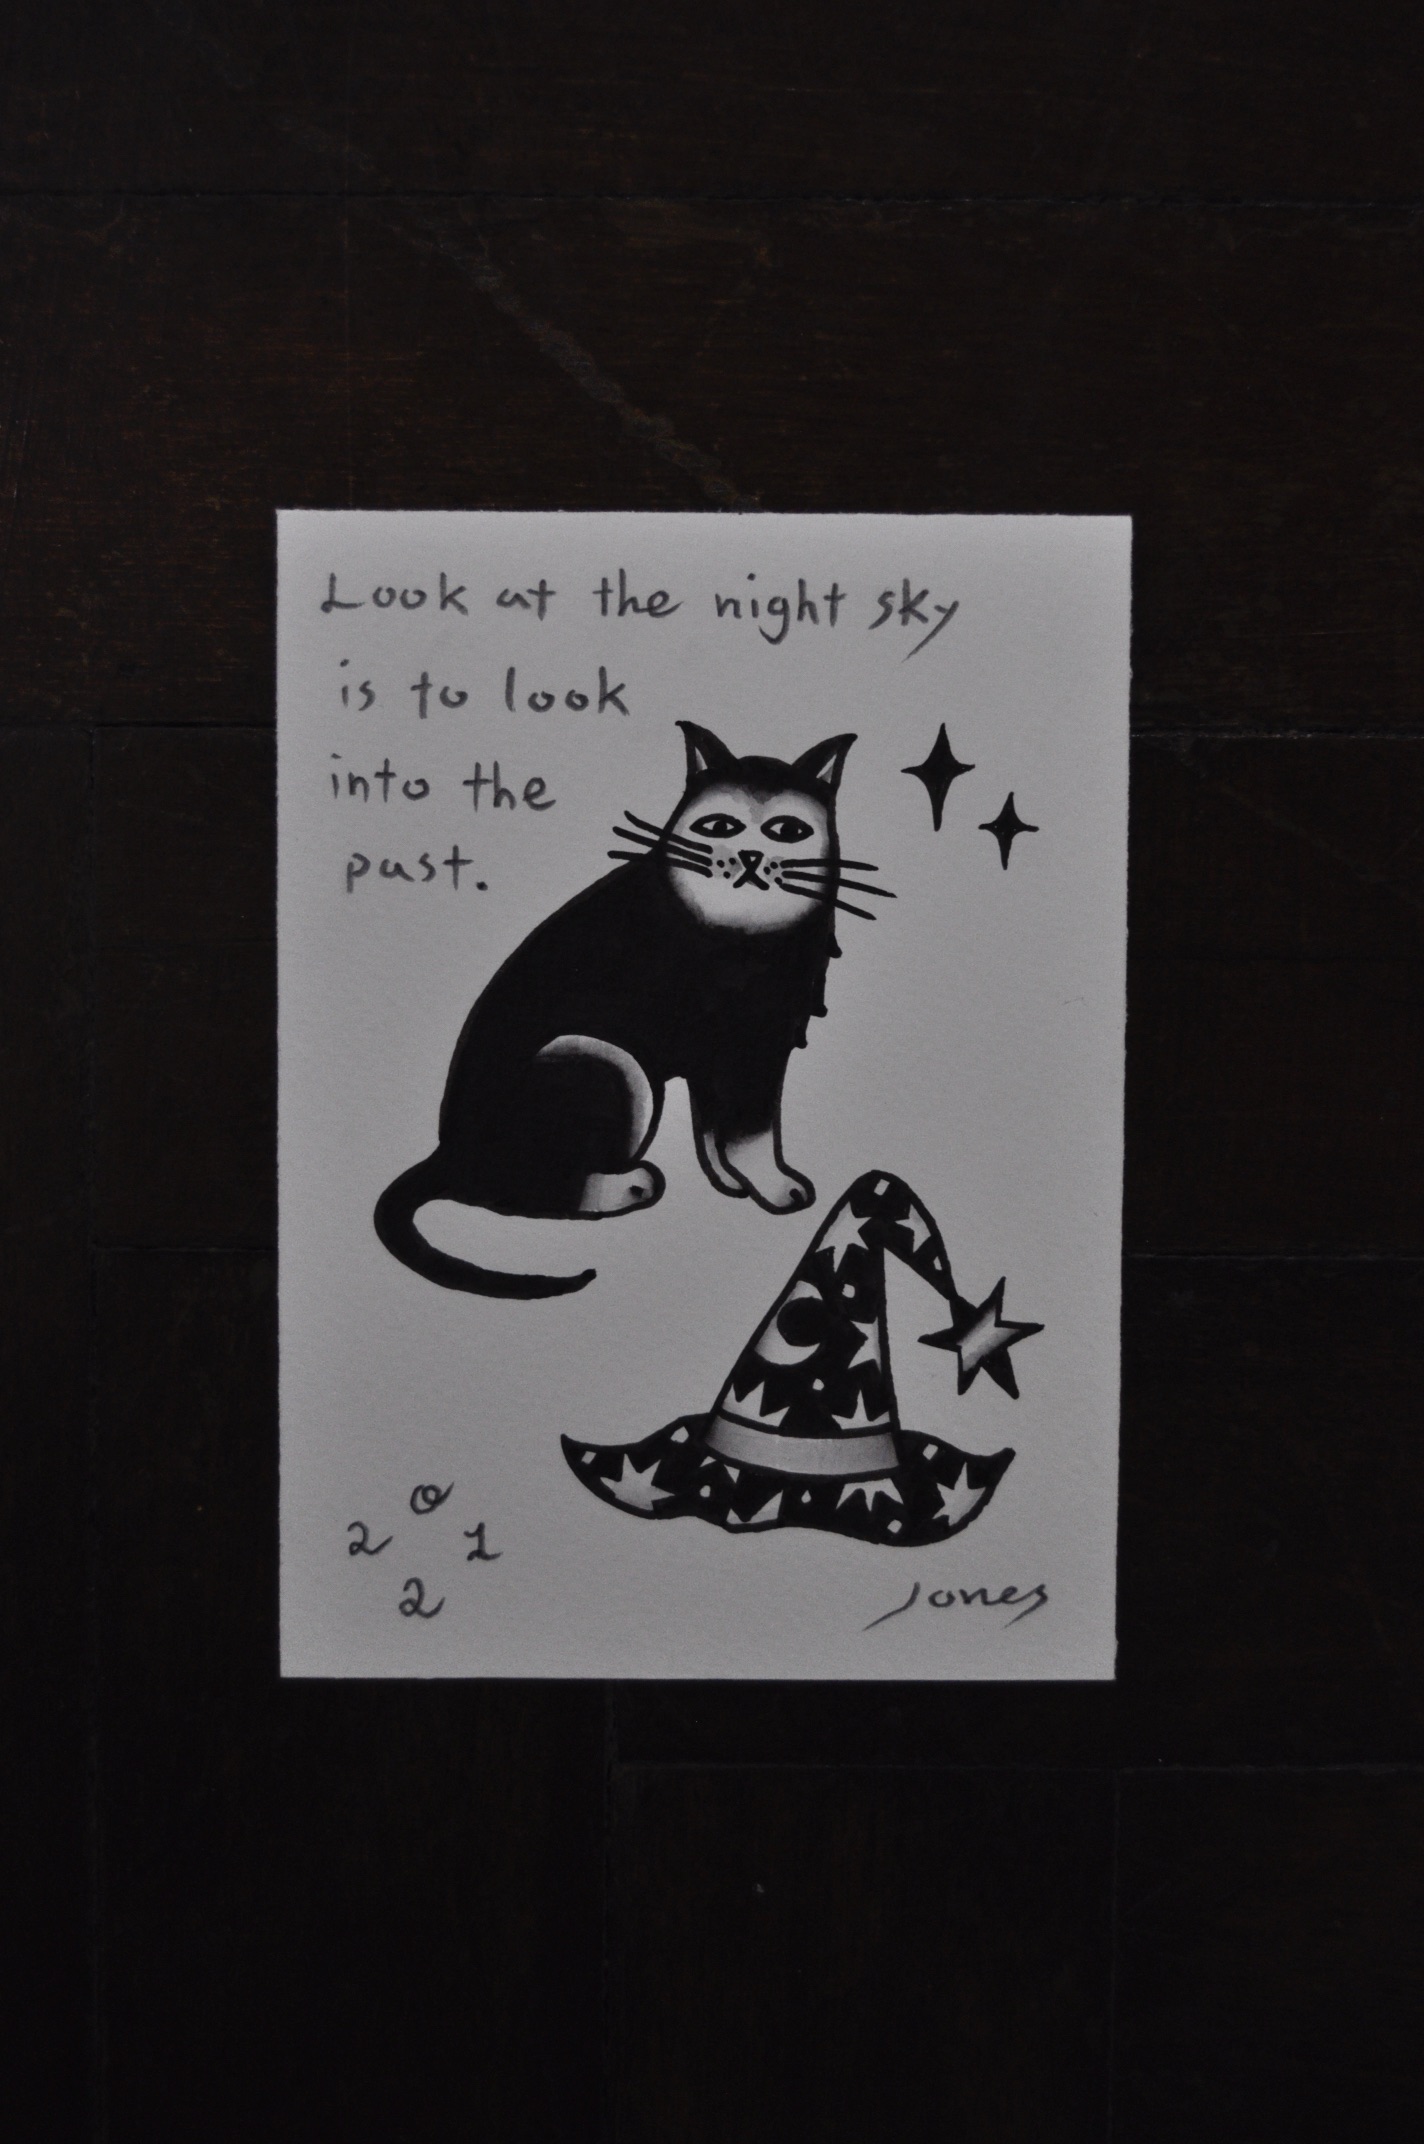 Look at the night sky
is to look
into the
past.
2021
Jones